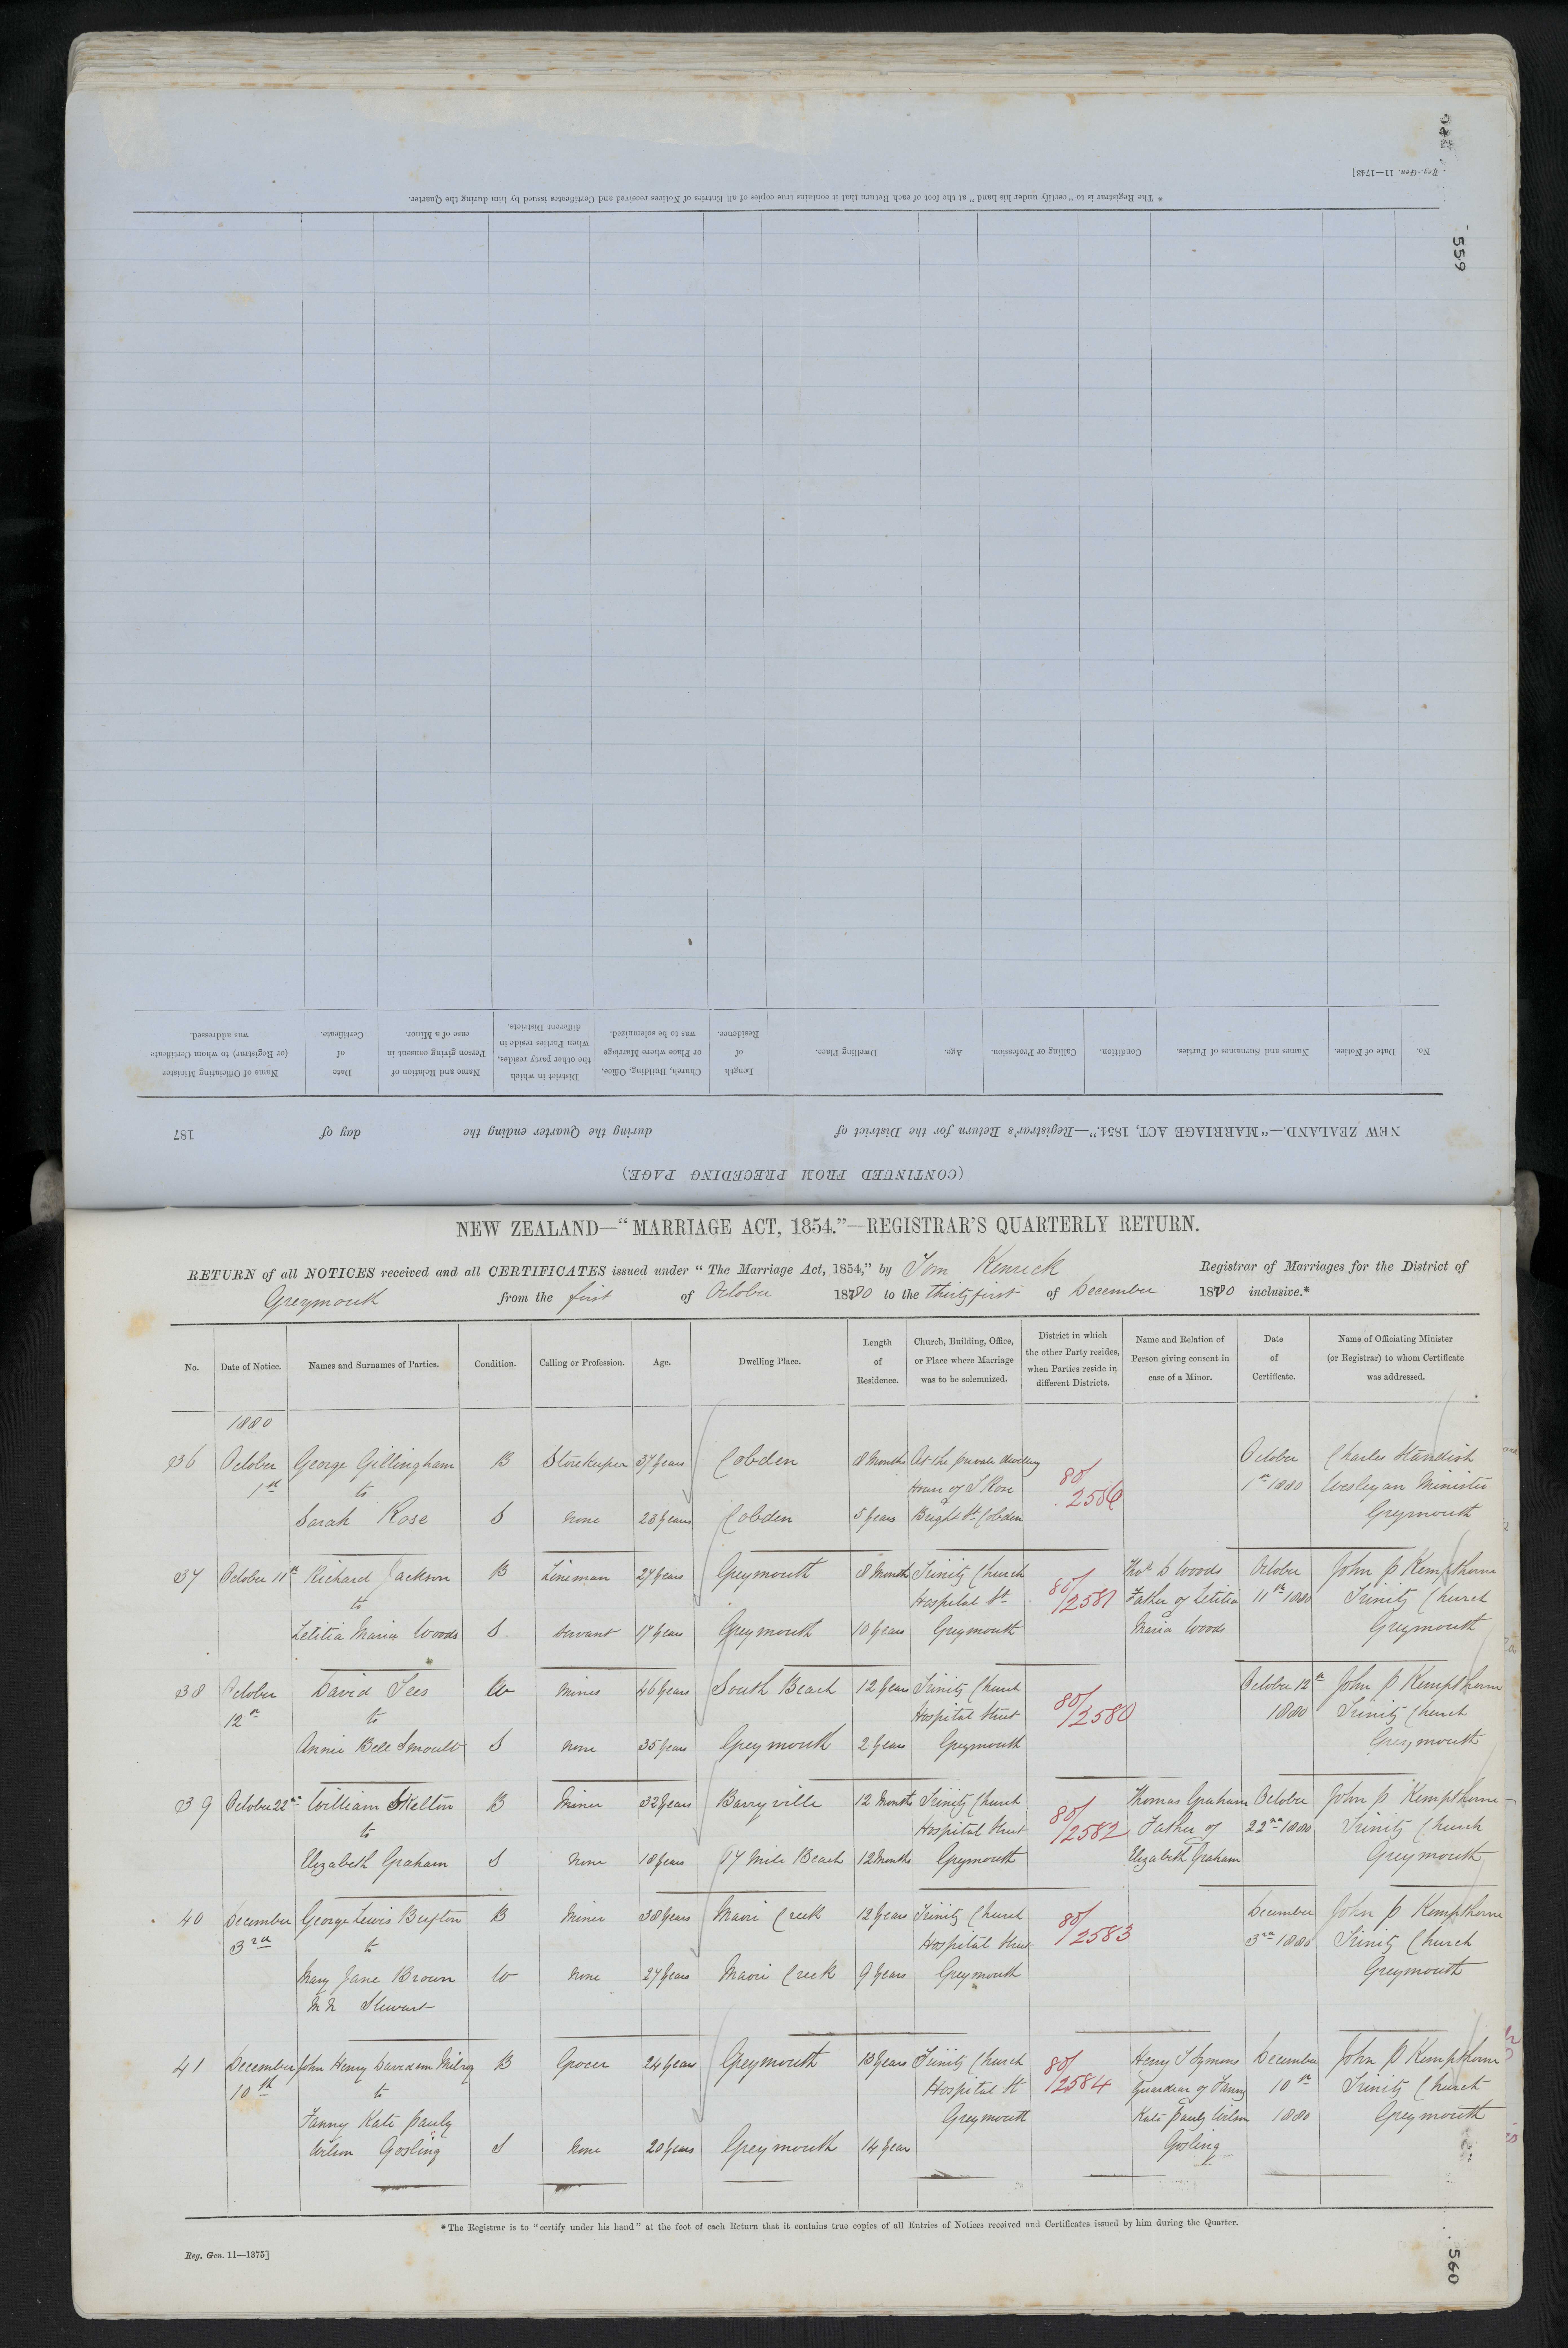 * The Registrar is to "certify under his hand" at the foot of each Return that it contains true copies of all Entries of Notices received and Certificates issued by him during the Quarter.
Reg.-Gen. 11—1743]
559
(CONTINUED FROM PRECEDING PAGE.)
NEW ZEALAND.—"MARRIAGE ACT, 1854."—Registrar's Return for the District of during the Quarter ending the day of 187
No. Date of Notice. Names and Surnames of Parties. Condition. Calling or Profession. Age. Dwelling Place. Length of Residence. Church, Building, Office, or Place where Marriage was to be solemnized. District in which the other party resides, when Parties reside in different Districts. Name and Relation of Person giving consent in case of a Minor. Date of Certificate. Name of Officiating Minister (or Registrar) to whom Certificate was addressed.
NEW ZEALAND—"MARRIAGE ACT, 1854."—REGISTRAR'S QUARTERLY RETURN.
RETURN of all NOTICES received and all CERTIFICATES issued under "The Marriage Act, 1854," by Tom Kenrick Registrar of Marriages for the District of
Greymouth from the first of October 1880 to the thirty first of December 1880 inclusive.*
No. Date of Notice. Names and Surnames of Parties. Condition. Calling or Profession. Age. Dwelling Place. Length of Residence. Church, Building, Office, or Place where Marriage was to be solemnized. District in which the other Party resides, when Parties reside in different Districts. Name and Relation of Person giving consent in case of a Minor. Date of Certificate. Name of Officiating Minister (or Registrar) to whom Certificate was addressed.
1880
36 October George Gillingham B Storekeeper 37 years Cobden 8 Months At the private dwelling October Charles Standish
1st to House of J Rose 80/2586 1st 1880 Wesleyan Minister
Sarah Rose S None 23 years Cobden 5 years Bright St Cobden Greymouth
37 October 11th Richard Jackson B Lineman 27 years Greymouth 8 Month Trinity Church 80/2581 Thos D Woods October John P Kempthorne
to Hospital St Father of Letitia 11th 1880 Trinity Church
Letitia Maria Woods S Servant 17 years Greymouth 10 years Greymouth Maria Woods Greymouth
38 October David Tees W Miner 46 years South Beach 12 years Trinity Church 80/2580 October 12th John P Kempthorne
12th to Hospital Street 1880 Trinity Church
Annie Bell Smoult S None 35 years Greymouth 2 years Greymouth Greymouth
39 October 22nd William Skelton B Miner 32 years Barryville 12 Month Trinity Church 80/2582 Thomas Graham October John P Kempthorne
to Hospital Street Father of 22nd 1880 Trinity Church
Elizabeth Graham S None 18 years 17 Mile Beach 12 Months Greymouth Elizabeth Graham Greymouth
40 December George Lewis Buxton B Miner 38 years Maori Creek 12 years Trinity Church 80/2583 December John P Kempthorne
3rd to Hospital Street 3rd 1880 Trinity Church
Mary Jane Brown W None 27 years Maori Creek 9 years Greymouth Greymouth
M N Stewart
41 December John Henry Davidson Milroy B Grocer 24 years Greymouth 13 years Trinity Church 80/2584 Henry J Symons December John P Kempthorne
10th to Hospital St Guardian of Fanny 10th Trinity Church
Fanny Kate Pauly Greymouth Kate Pauly Wilson 1880 Greymouth
Wilson Gosling S None 20 years Greymouth 14 year Gosling
* The Registrar is to "certify under his hand" at the foot of each Return that it contains true copies of all Entries of Notices received and Certificates issued by him during the Quarter.
Reg. Gen. 11—1375]
560